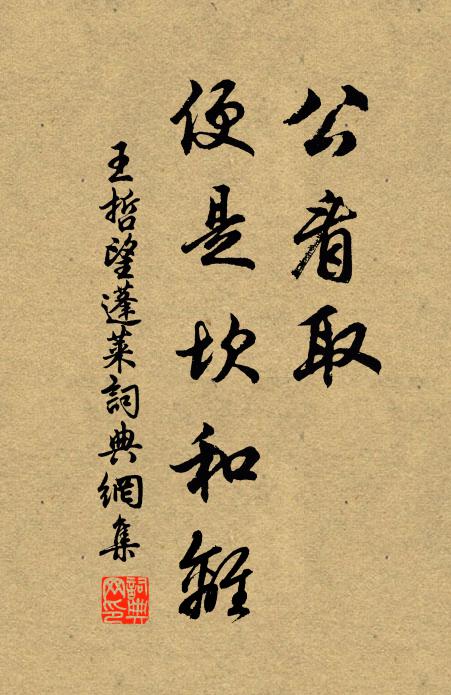 公看取
便是坎和離
王哲望蓬萊詞典網集
詞典网印